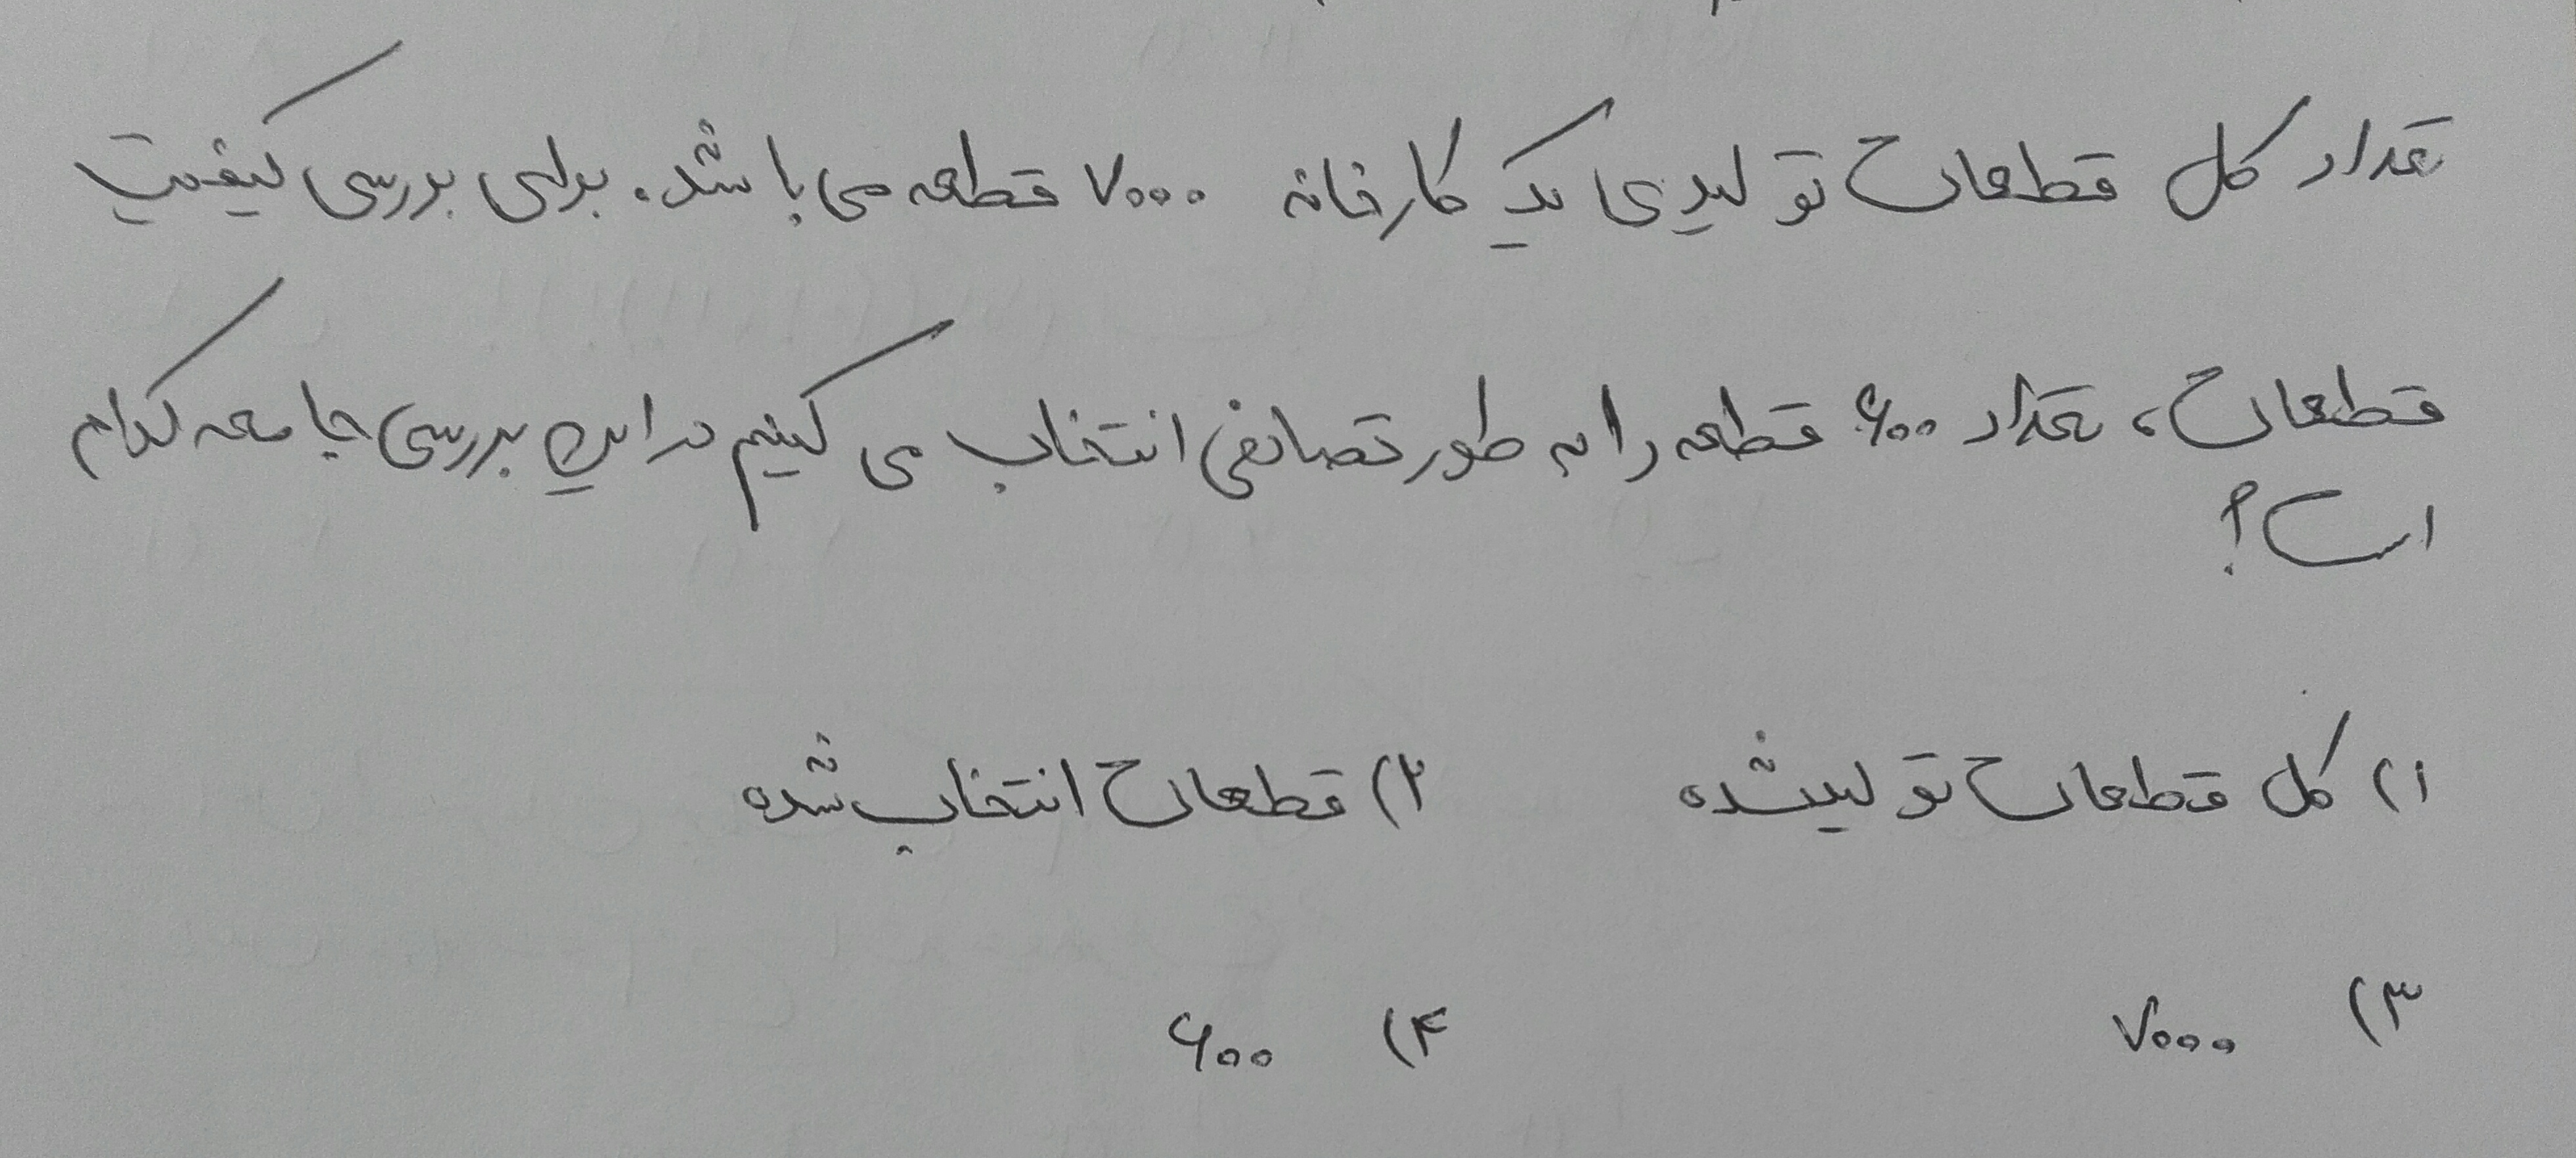 تعداد کل قطعات تولیدی یک کارخانه ۷۰۰۰ قطعه می باشد. برای بررسی کیفیت
قطعات، تعداد ۶۰۰ قطعه را به طور تصادفی انتخاب می کنیم در این بررسی جامعه کدام
است؟
۱) کل قطعات تولیدشده ۲) قطعات انتخاب شده
۳) ۷۰۰۰ ۴) ۶۰۰